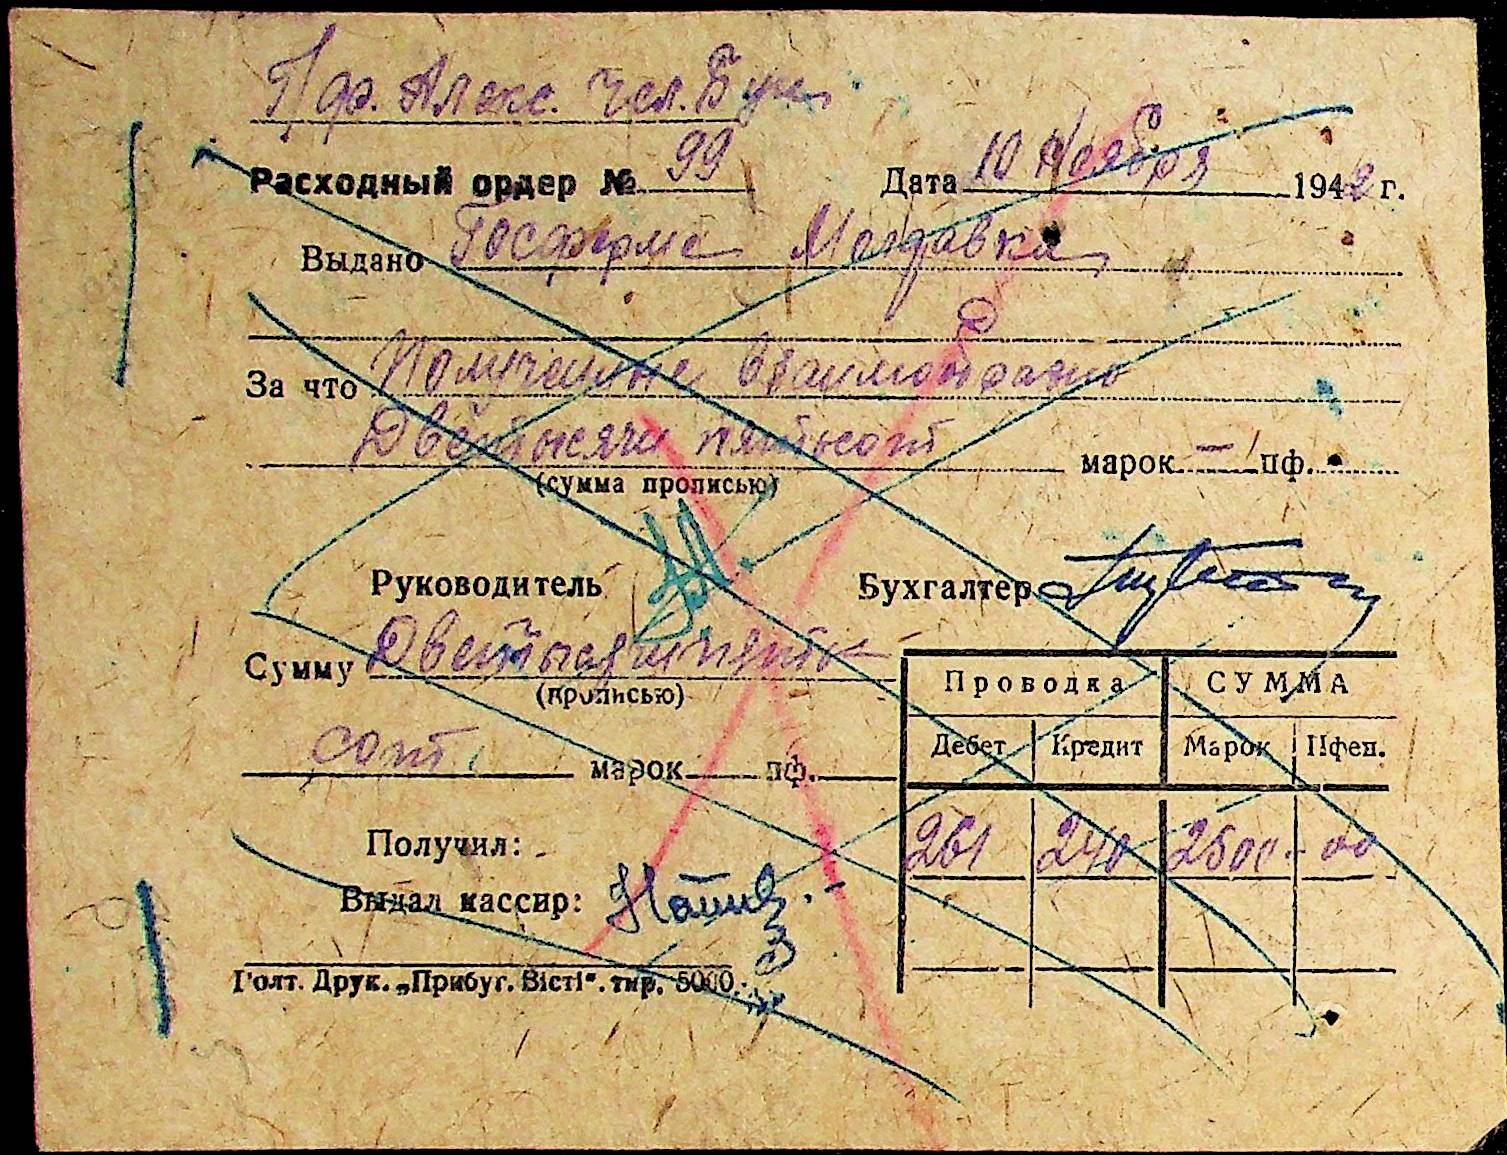 Пдр. Алекс. Чсл. Бух
Расходный ордер № 99 Дата 10 Ноября 1942 г.
Выдано Госферме Молдавка
За что
Две тысячи пятьсот марок — пф.
(сумма прописью)
Руководитель Бухгалтер
Сумму Две тысячи пять-
(прописью)
сот. марок пф.
Проводка СУММА
Дебет Кредит Марок Пфен.
261 240 2500 - 00
Получил:
Выдал кассир:
Голт. Друк. „Прибуг. Вісті". тир. 5000.